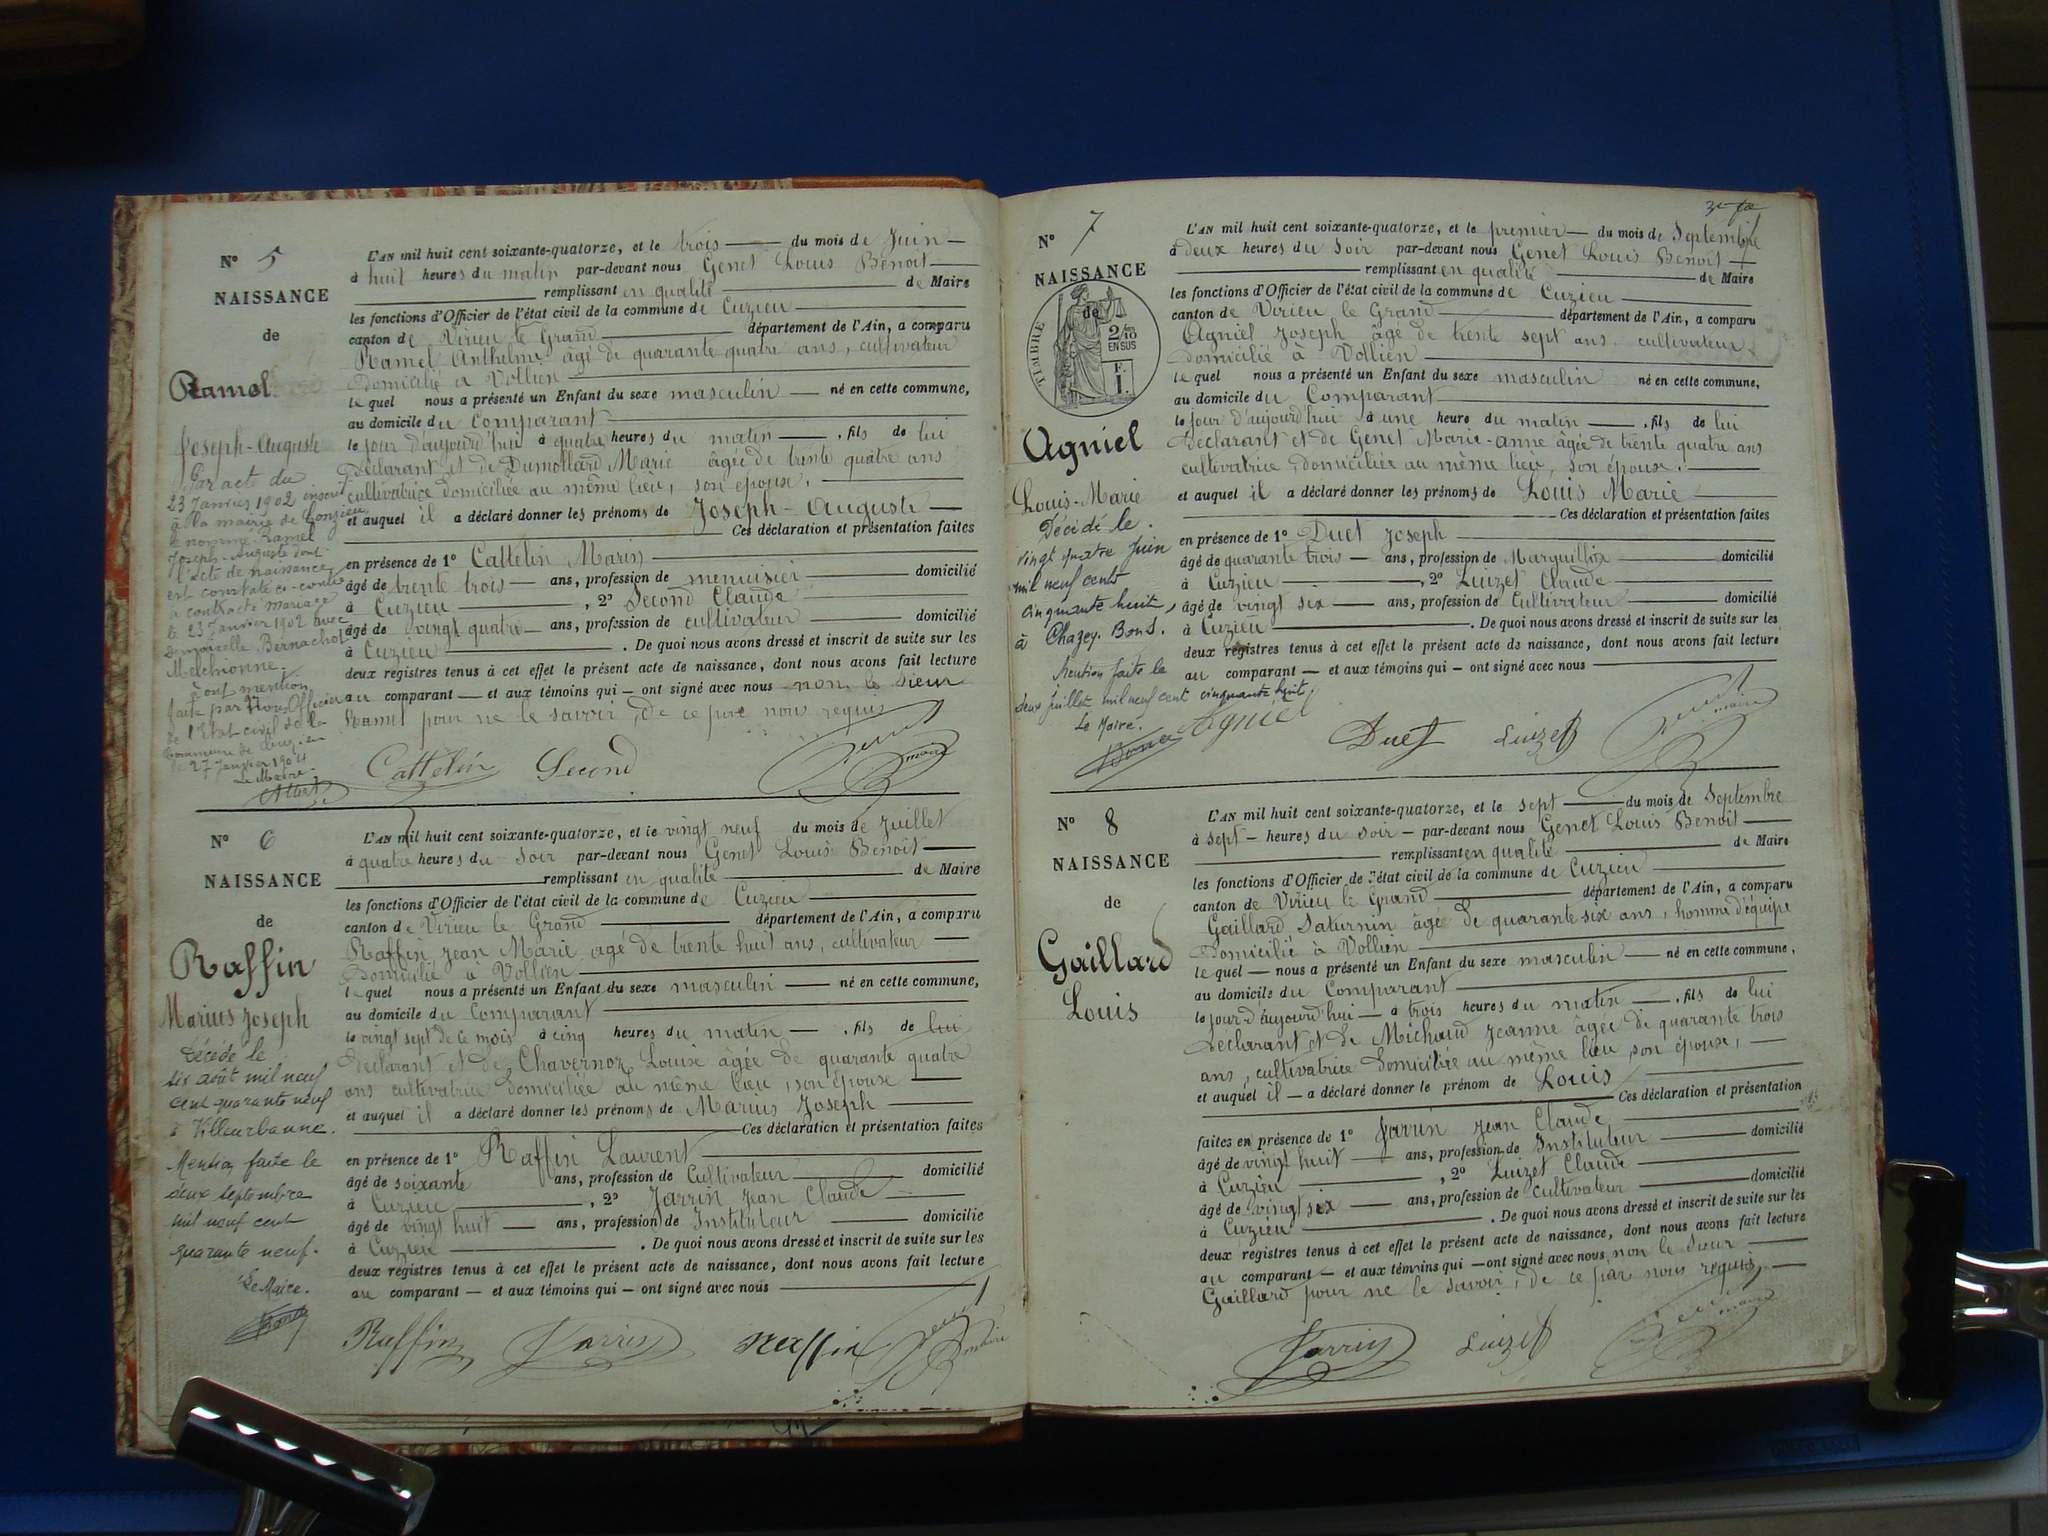 N° 5
NAISSANCE
de
Ramel
Joseph-Auguste
Par acte du
23 Janvier 1902 inscrit
à la mairie de
le nommé Ramel
Joseph-Auguste dont
l'acte de naissance
est constaté ci-contre
a contracté mariage
le 23 Janvier 1902 avec
demoiselle Bernachot
Melchionne.
dont mention
faite par Nous Officier
de l'Etat civil de la
Commune de
27 Janvier 1904
Le Maire.
L'AN mil huit cent soixante-quatorze, et le trois du mois de Juin
à huit heures du matin par-devant nous Genet Louis Benoit
remplissant en qualité de Maire
les fonctions d'Officier de l'état civil de la commune de Cuzieu
canton de Virieu le Grand département de l'Ain, a comparu
Ramel Anthelme âgé de quarante quatre ans, cultivateur
domicilié à Vollien
lequel nous a présenté un Enfant du sexe masculin né en cette commune,
au domicile du Comparant
le jour d'aujourd'hui à quatre heures du matin, fils de lui
Déclarant et de Dumollard Marie âgée de trente quatre ans
cultivatrice domiciliée au même lieu, son épouse,
et auquel il a déclaré donner les prénoms de Joseph-Auguste
Ces déclaration et présentation faites
en présence de 1° Cattelin Marin
âgé de trente trois ans, profession de menuisier domicilié
à Cuzieu, 2° Second Claude
âgé de vingt quatre ans, profession de cultivateur domicilié
à Cuzieu. De quoi nous avons dressé et inscrit de suite sur les
deux registres tenus à cet effet le présent acte de naissance, dont nous avons fait lecture
au comparant et aux témoins qui ont signé avec nous non le Sieur
Ramel pour ne le savoir, de ce par nous requis
Cattelin Second Genet maire
N° 6
NAISSANCE
de
Raffin
Marius Joseph
Décédé le
six août mil neuf
cent quarante neuf
à Villeurbanne.
Mention faite le
deux septembre
mil neuf cent
quarante neuf.
Le Maire.
L'AN mil huit cent soixante-quatorze, et le vingt neuf du mois de Juillet
à quatre heures du soir par-devant nous Genet Louis Benoit
remplissant en qualité de Maire
les fonctions d'Officier de l'état civil de la commune de Cuzieu
canton de Virieu le Grand département de l'Ain, a comparu
Raffin Jean Marie agé de trente huit ans, cultivateur
Domicilié à Vollien
lequel nous a présenté un Enfant du sexe masculin né en cette commune,
au domicile du Comparant
le vingt sept de ce mois à cinq heures du matin, fils de lui
Déclarant et de Chavernoz Louise âgée de quarante quatre
ans cultivatrice domiciliée au même lieu, son épouse
et auquel il a déclaré donner les prénoms de Marius Joseph
Ces déclaration et présentation faites
en présence de 1° Raffin Laurent
âgé de soixante ans, profession de Cultivateur domicilié
à Cuzieu, 2° Jarrin Jean Claude
âgé de vingt huit ans, profession de Instituteur domicilié
à Cuzieu. De quoi nous avons dressé et inscrit de suite sur les
deux registres tenus à cet effet le présent acte de naissance, dont nous avons fait lecture
au comparant et aux témoins qui ont signé avec nous
Raffin Jarrin Raffin Genet maire
N° 7
NAISSANCE
de
TIMBRE
2/10
EN SUS
F.
1.
Agniel
Louis-Marie
Décédé le
vingt quatre Juin
mil neuf cent
cinquante huit,
à Chazey-Bons.
Mention faite le
deux juillet mil neuf cent cinquante huit
Le Maire.
L'AN mil huit cent soixante-quatorze, et le premier du mois de Septembre
à deux heures du soir par-devant nous Genet Louis Benoit
remplissant en qualité de Maire
les fonctions d'Officier de l'état civil de la commune de Cuzieu
canton de Virieu le Grand département de l'Ain, a comparu
Agniel Joseph âgé de trente sept ans cultivateur
domicilié à Vollien
lequel nous a présenté un Enfant du sexe masculin né en cette commune,
au domicile du Comparant
le jour d'aujourd'hui à une heure du matin, fils de lui
Déclarant et de Genet Marie-anne âgée de trente quatre ans
cultivatrice domiciliée au même lieu, son épouse.
et auquel il a déclaré donner les prénoms de Louis Marie
Ces déclaration et présentation faites
en présence de 1° Duet Joseph
âgé de quarante trois ans, profession de Marguillier domicilié
à Cuzieu, 2° Luizet Claude
âgé de vingt six ans, profession de Cultivateur domicilié
à Cuzieu. De quoi nous avons dressé et inscrit de suite sur les
deux registres tenus à cet effet le présent acte de naissance, dont nous avons fait lecture
au comparant et aux témoins qui ont signé avec nous
Agniel Duet Luizet Genet maire
N° 8
NAISSANCE
de
Gaillard
Louis
L'AN mil huit cent soixante-quatorze, et le sept du mois de Septembre
à sept heures du soir par-devant nous Genet Louis Benoit
remplissant en qualité de Maire
les fonctions d'Officier de l'état civil de la commune de Cuzieu
canton de Virieu le Grand département de l'Ain, a comparu
Gaillard Saturnin âgé de quarante six ans, homme d'équipe
domicilié à Vollien
lequel nous a présenté un Enfant du sexe masculin né en cette commune,
au domicile du Comparant
le jour d'aujourd'hui à trois heures du matin, fils de lui
Déclarant et de Michaud Jeanne âgée de quarante trois
ans, cultivatrice domiciliée au même lieu, son épouse,
et auquel il a déclaré donner le prénom de Louis
Ces déclaration et présentation
faites en présence de 1° Jarrin Jean Claude
âgé de vingt huit ans, profession de Instituteur domicilié
à Cuzieu, 2° Luizet Claude
âgé de vingt six ans, profession de cultivateur domicilié
à Cuzieu. De quoi nous avons dressé et inscrit de suite sur les
deux registres tenus à cet effet le présent acte de naissance, dont nous avons fait lecture
au comparant et aux témoins qui ont signé avec nous non le Sieur
Gaillard pour ne le savoir, de ce par nous requis,
Jarrin Luizet Genet maire